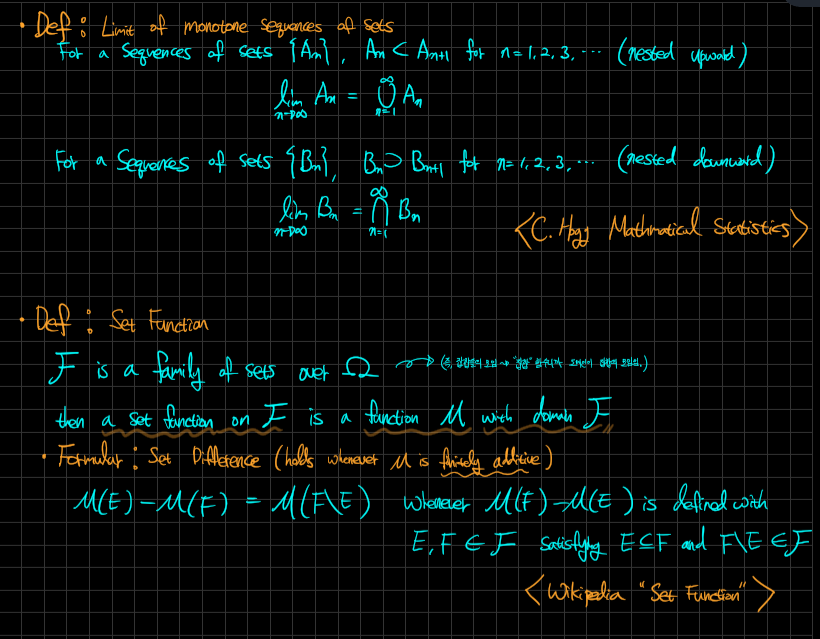 • Def : Limit of monotone sequences of sets
For a Sequences of sets {An}, An ⊂ An+1 for n=1, 2, 3, ⋯ (nested upward)
lim n→∞ An = ∞ ∪ n=1 An
For a Sequences of sets {Bn}, Bn ⊃ Bn+1 for n=1, 2, 3, ⋯ (nested downward)
lim n→∞ Bn = ∞ ∩ n=1 Bn
<C. Hogg Mathmatical Statistics>
• Def : Set Function
F is a family of sets over Ω → (즉, 집합들의 모임 →
then a set function on F is a function M with domain F
• Formular : Set Difference (holds whenever M is finitely additive)
M(E) - M(F) = M(F\E) whenever M(F) - M(E) is defined with
E, F ∈ F satisfying E ⊆ F and F\E ∈ F
<Wikipedia "Set Function">